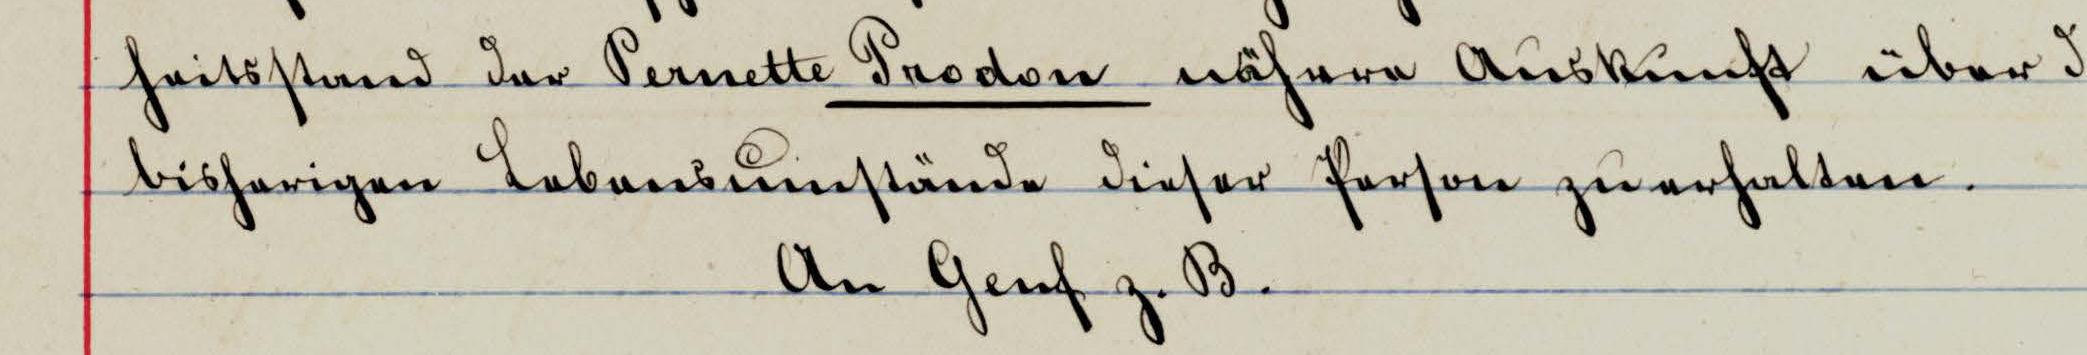 heitsstand der Pernette Prodon nähere Auskunft über d
bisherigen Lebensumstände dieser Person zu erhalten.
An Genf z. B.